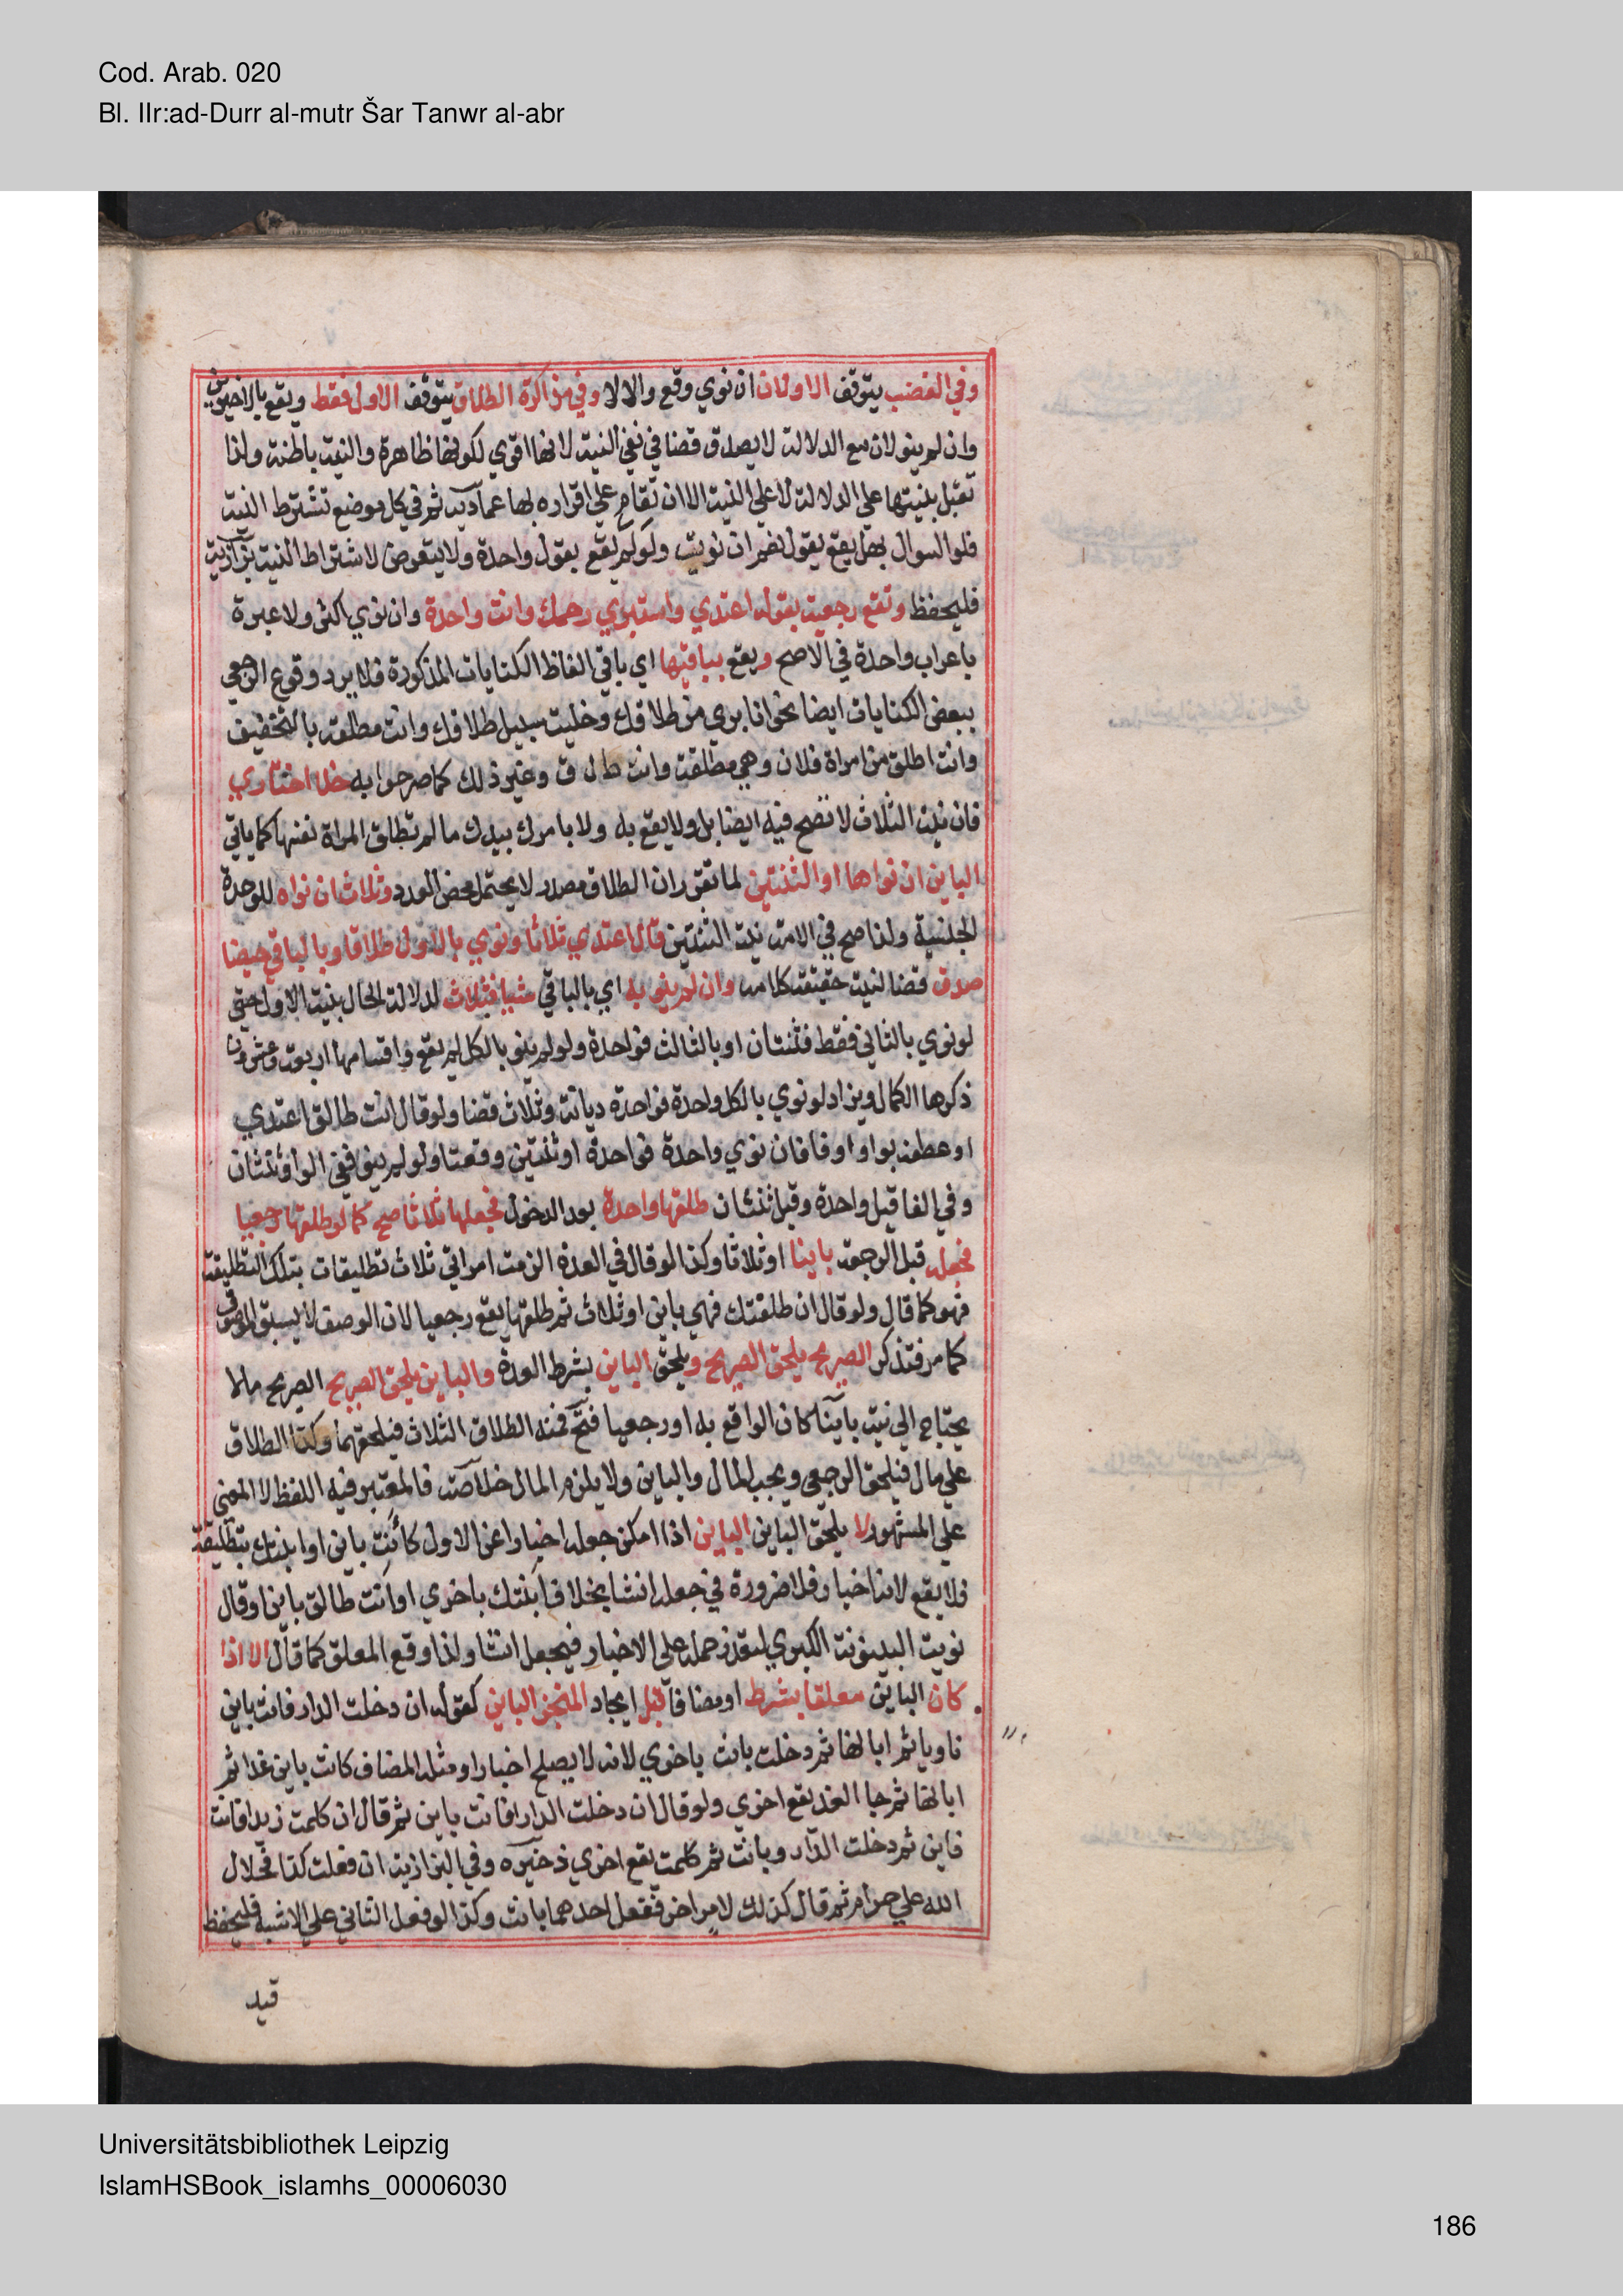 Cod. Arab. 020
Bl. IIr:ad-Durr al-mutr Šar Tanwr al-abr
وفي الغضب يتوقف الاولان ان نوي وقع والا لا وفي مذاكرة الطلاق يتوقف الاول فقط ويقع بالاخيرين
وان لم ينو لان مع الدلالة لا يصدق قضا في نفي النية لانها اقوي لكونها ظاهرة والنية باطنة ولذا
تقبل بنيتها علي الدلالة لا علي النية الا ان تقام علي اقراره بها عمادية ثم في كل موضع تشترط النية
فلو السوال بهل يقع بقول نعم ان نويت ولو كم يقع بقول واحدة ولا يتعرض لاشتراط النية بزازية
فليحفظ وتقع رجعية بقوله اعتدي واستبري رحمك وانت واحدة وان نوي اكثر ولا عبرة
باعراب واحدة في الاصح ويقع بباقيها اي باقي الفاظ الكنايات المذكورة فلا يرد وقوع الرجعي
ببعض الكنايات ايضا نحو انا بري من طلاقك وخليت سبيل طلاقك وانت مطلقة بالتخفيف
وانت اطلق من امراة فلان وهي مطلقة وانت ط ل ق وغير ذلك كما صرحوا به خلا اختاري
فان نية الثلاث لا تصح فيه ايضا بل ولا يقع به ولا بامرك بيدك ما لم تطلق المراة نفسها كما ياتي
الباين ان نواها او الثنتين لما تقرر ان الطلاق مصدر لا يحتمل محض العدد وثلاث ان نواه للوحدة
الجنسية ولذا صح في الامة نية الثنتين قال اعتدي ثلاثا ونوي بالاول طلاقا وبالباقي حيضا
صدق قضا لنية حقيقة كلامه وان لم ينو به اي بالباقي شيا فثلاث لدلالة الحال بنية الاول حتي
لو نوي بالثاني فقط فثنتان او بالثالث فواحدة ولو لم ينو بالكل لم يقع واقسامها اربعة وعشرون
ذكرها الكمال ويزاد لو نوي بالكل واحدة فواحدة ديانة وثلاث قضا ولو قال انت طالق اعتدي
او عطفه بواو او فا فان نوي واحدة فواحدة او ثنتين وقعتا ولو لم ينو ففي الواو ثنتان
وفي الفا قيل واحدة وقيل ثنتان طلقها واحدة بعد الدخول فجعلها ثلاثا صح كما لو طلقها رجعيا
فجعله قبل الرجعة باينا او ثلاثا وكذا لو قال في العدة الزمت امراتي ثلاث تطليقات بتلك التطليقة
فهو كما قال ولو قال ان طلقتك فهي باين او ثلاث ثم طلقها يقع رجعيا لان الوصف لا يسبق الموصوف
كما مر فتذكر الصريح يلحق الصريح ويلحق الباين بشرط العدة والباين يلحق الصريح الصريح ما لا
يحتاج الي نية باينا كان الواقع به او رجعيا فتح فمنه الطلاق الثلاث فيلحقهما وكذا الطلاق
علي مال فيلحق الرجعي ويجب المال والباين ولا يلزم المال خلاصة فالمعتبر فيه اللفظ لا المعني
علي المشهور لا يلحق الباين الباين اذا امكن جعله اخبارا عن الاول كانت باين او ابنتك بتطليقة
فلا يقع لانه اخبار فلا ضرورة في جعله انشا بخلاف ابنتك باخري او انت طالق باين او قال
نويت البينونة الكبري لتعذر حمله علي الاخبار فيجعل انشا ولذا وقع المعلق كما قال الا اذا
كان الباين معلقا بشرط او مضافا قبل ايجاد المنجز الباين كقوله ان دخلت الدار فانت باين
ناويا ثم ابانها ثم دخلت بانت باخري لانه لا يصلح اخبارا ومثله المضاف كانت باين غدا ثم
ابانها ثم جا الغد يقع اخري ولو قال ان دخلت الدار فانت باين ثم قال ان كلمت زيدا فانت
فاين ثم دخلت الدار وبانت ثم كلمت يقع اخري ذخيره وفي البزازية ان فعلت كذا فحلال
الله علي حرام ثم قال كذلك لامر اخر ففعل احدهما بانت وكذا لو فعل الثاني علي الاشبه فليحفظ
قيد
Universitätsbibliothek Leipzig
IslamHSBook_islamhs_00006030
186